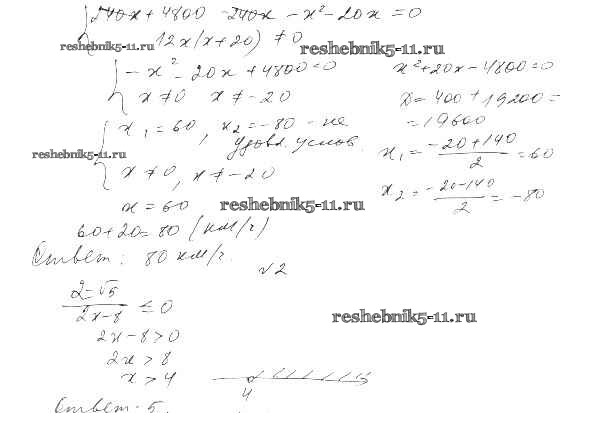 240x + 4800 - 240x - x² - 20x = 0
12x(x+20) ≠ 0
reshebnik5-11.ru
reshebnik5-11.ru
-x² - 20x + 4800 = 0
x ≠ 0 x ≠ -20
x² + 20x - 4800 = 0
D = 400 + 19200 =
= 19600
x₁ = 60, x₂ = -80 - не
удовл. услов.
x ≠ 0, x ≠ -20
reshebnik5-11.ru
x₁ = (-20+140)/2 = 60
x₂ = (-20-140)/2 = -80
x = 60
reshebnik5-11.ru
60+20 = 80 (км/ч)
Ответ: 80 км/ч.
√2
(2-√5)/(2x-8) ≤ 0
reshebnik5-11.ru
2x-8 > 0
2x > 8
x > 4
4
Ответ: 5.